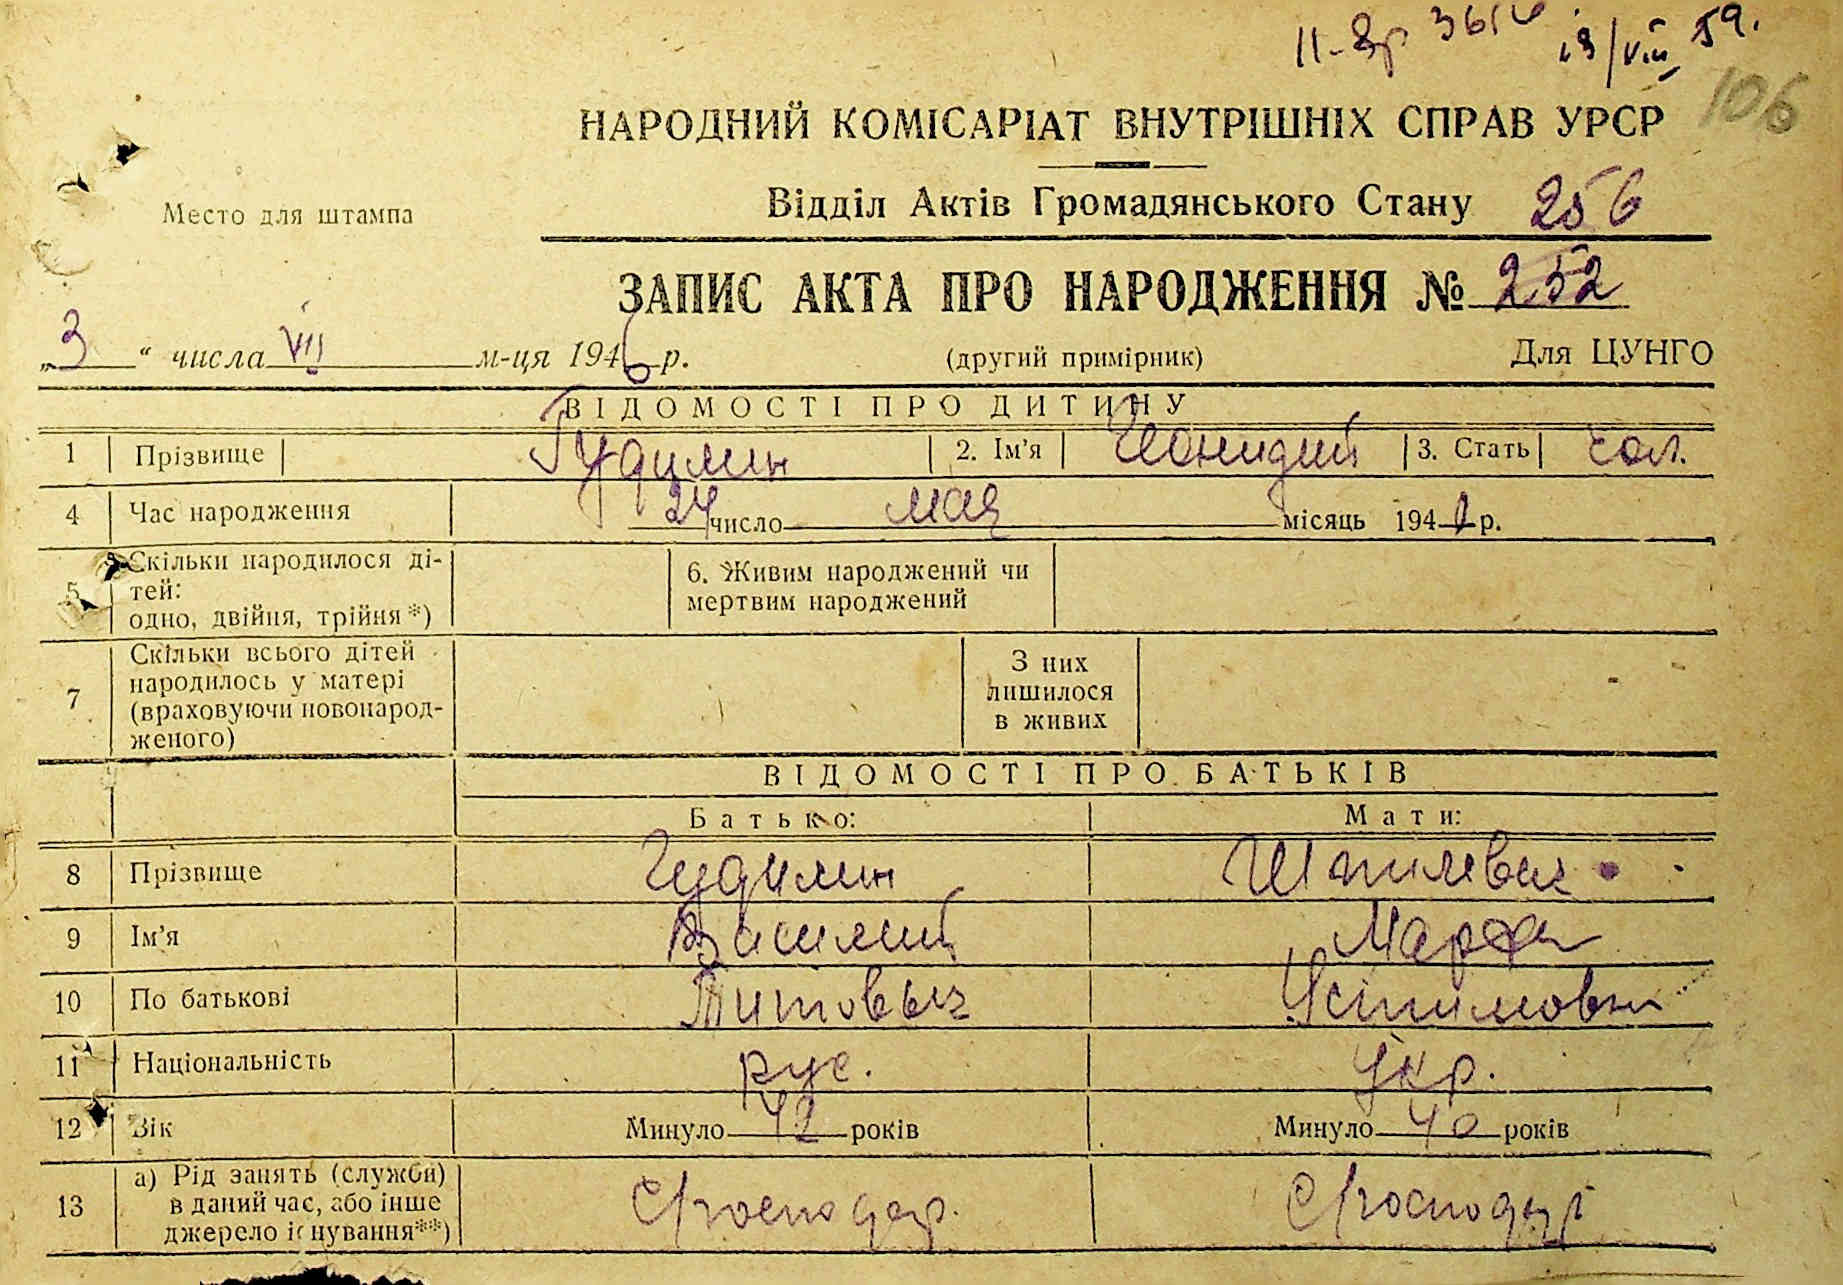 13/VIII 59.
106
НАРОДНИЙ КОМІСАРІАТ ВНУТРІШНІХ СПРАВ УРСР
Место для штампа
Відділ Актів Громадянського Стану 256
ЗАПИС АКТА ПРО НАРОДЖЕННЯ № 252
„3“ числа VII м-ця 1946 р. (другий примірник) Для ЦУНГО
ВІДОМОСТІ ПРО ДИТИНУ
1 Прізвище Гудилин 2. Ім'я 3. Стать чол.
4 Час народження 24 число мая місяць 194 р.
5 Скільки народилося дітей: одно, двійня, трійня*) 6. Живим народжений чи мертвим народжений
7 Скільки всього дітей народилось у матері (враховуючи новонародженого) З них лишилося в живих
ВІДОМОСТІ ПРО БАТЬКІВ
Батько: Мати:
8 Прізвище Гудилин
9 Ім'я Василий Марфа
10 По батькові Титовыч Устимовна
11 Національність рус. укр.
12 Вік Минуло 42 років Минуло 40 років
13 а) Рід занять (служби) в даний час, або інше джерело існування**) С/господар. С/господар